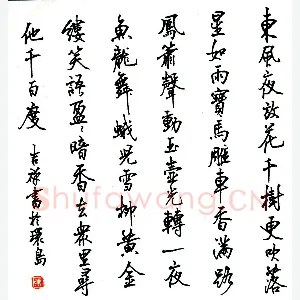 東風夜放花千樹更吹落
星如雨寶馬雕車香滿路
鳳簫聲動玉壺光轉一夜
魚龍舞蛾兒雪柳黃金
縷笑語盈〻暗香去眾里尋
他千百度
吉祥書於環島
Shufawang.CN